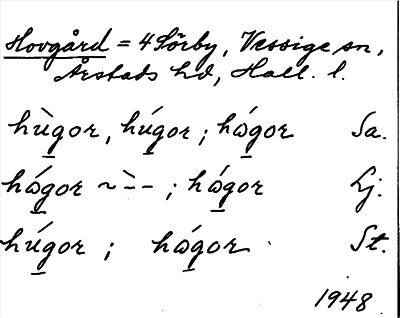 Hovgård = 4 Sörby, Vessige sn,
Årstads hd, Hall. l.
hù̱gor, hú̱gor; hǿ̱gor Sa.
hǿ̱gor ~ ̀ - - ; hǿ̱gor Lj.
hú̱gor ; hǿ̱gor. St.
1948.